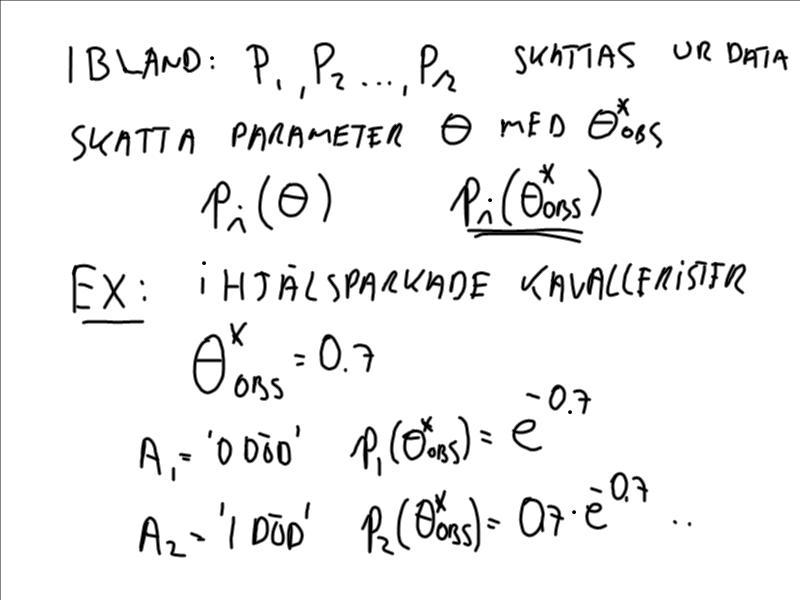 IBLAND: P₁, P₂ ..., Pᵣ SKATTAS UR DATA
SKATTA PARAMETER θ MED θ*OBS
Pᵢ(θ) Pᵢ(θ*OBS)
EX: IHJÄLSPARKADE KAVALLERISTER
θ*OBS = 0.7
A₁ = '0 DÖD' P₁(θ*OBS) = e^-0.7
A₂ = '1 DÖD' P₂(θ*OBS) = 0.7 · e^-0.7 ..